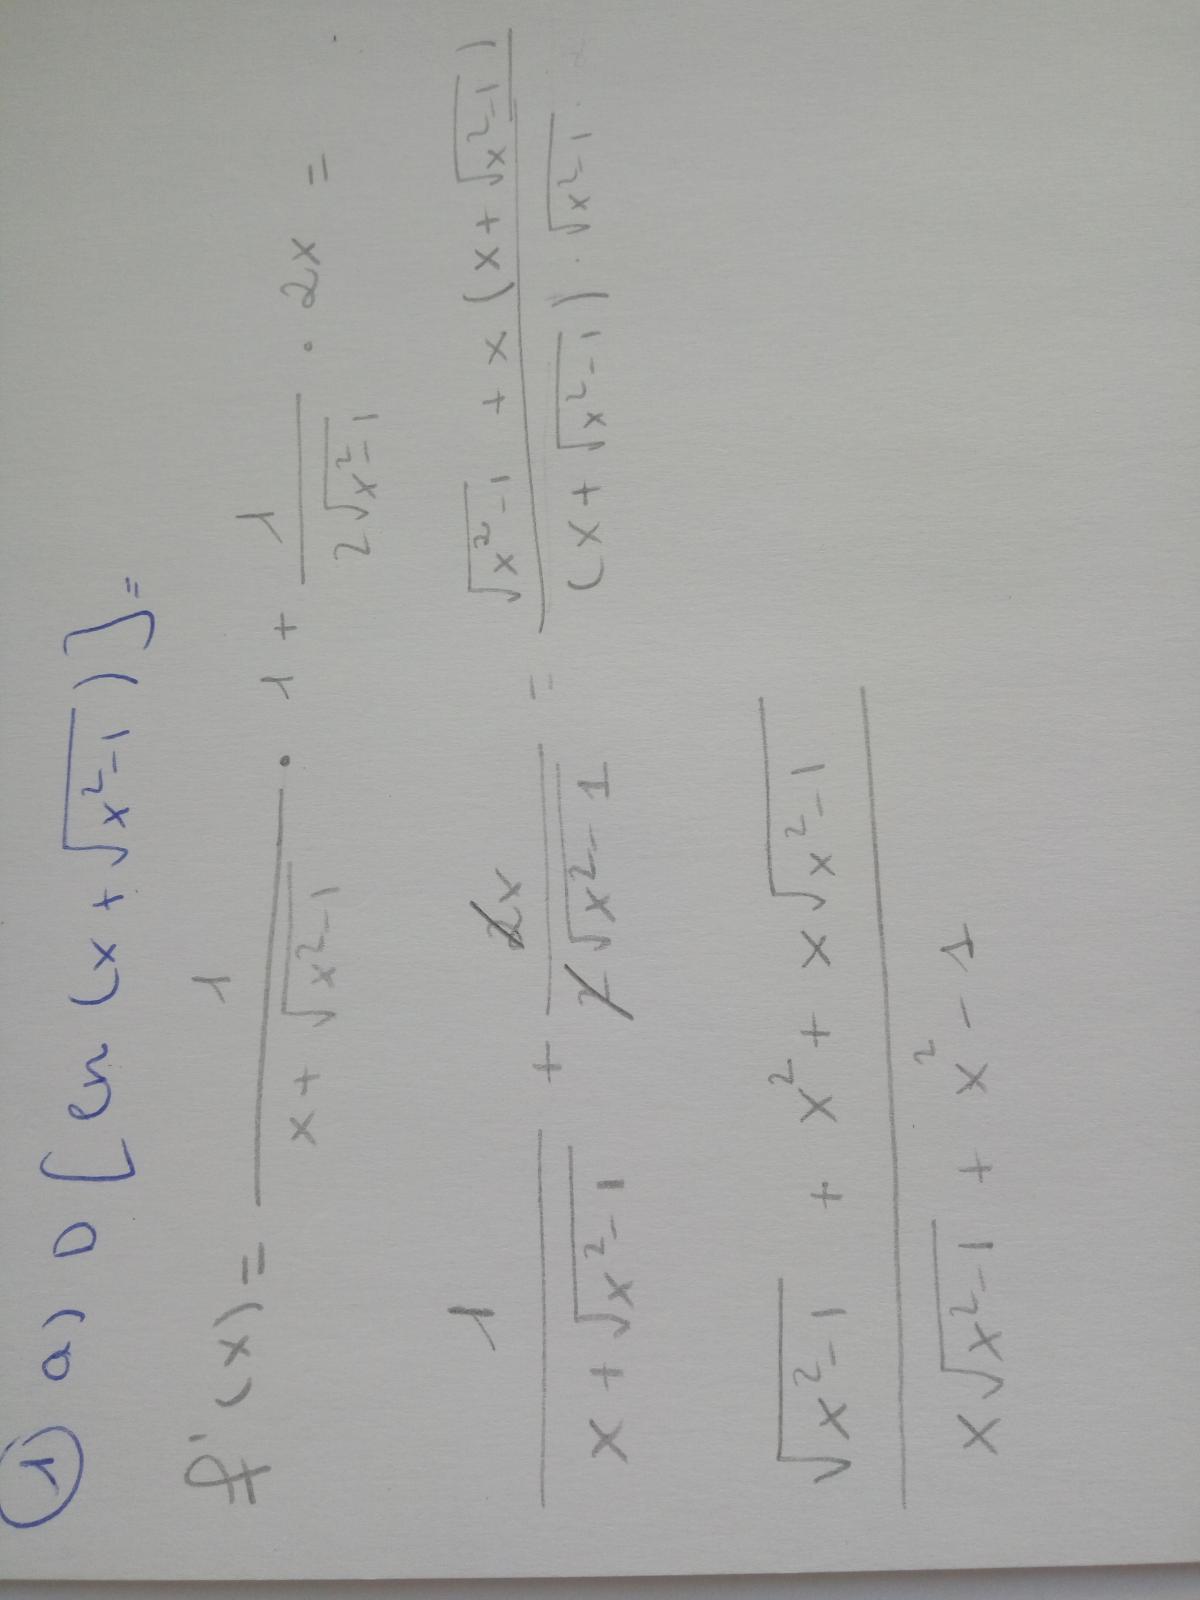 ① a) D [ln (x + √(x²-1))] =
f'(x) = 1/(x + √(x²-1)) · 1 + 1/(2√(x²-1)) · 2x =
1/(x + √(x²-1)) + 2x/(2√(x²-1)) = (√(x²-1) + x (x + √(x²-1)))/((x + √(x²-1)) · √(x²-1))
(√(x²-1) + x² + x√(x²-1))/(x√(x²-1) + x² - 1)